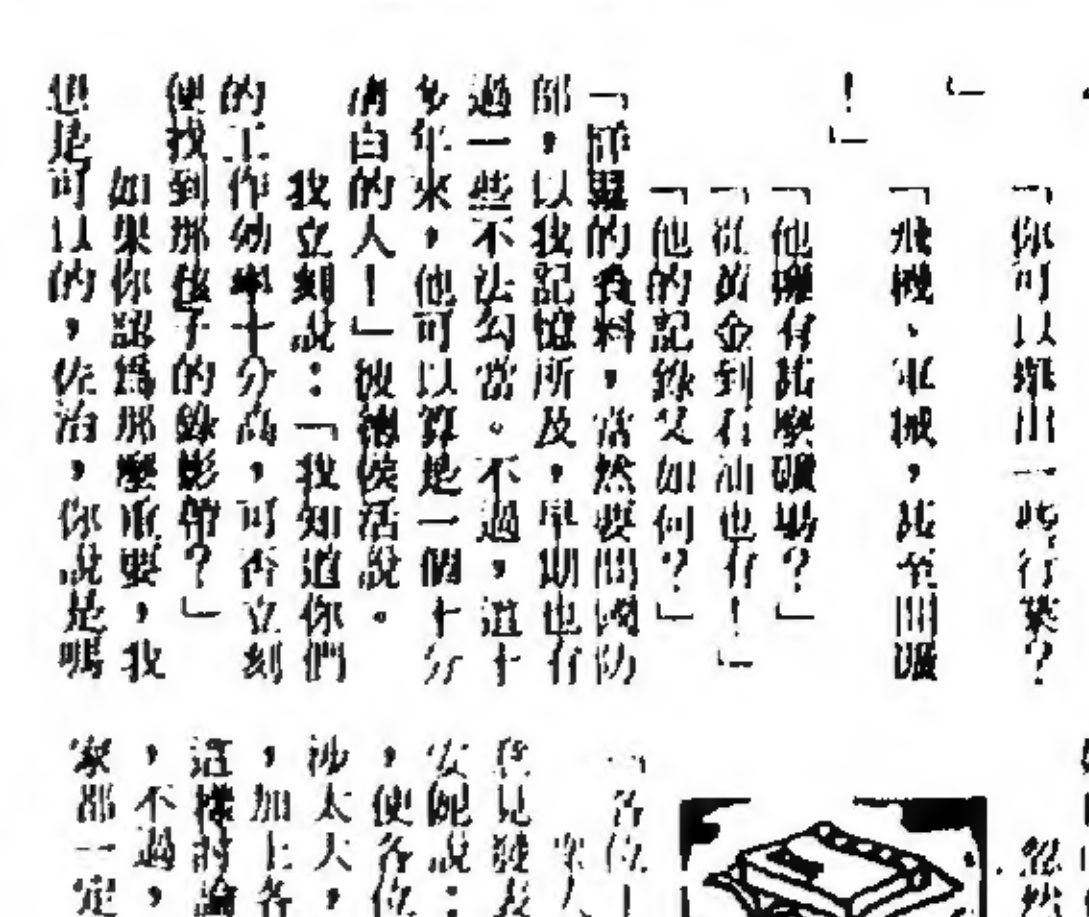 「你可以舉出一些行業?
」
「飛機、軍械,甚至開礦
!」
「他擁有甚麼礦場?」
「從黃金到石油也有!」
「他的記錄又如何?」
「詳盡的資料,當然要問國防
部,以我記憶所及,早期也有
過一些不法勾當。不過,這十
多年來,他可以算是一個十分
清白的人!」彼得侯活說。
我立刻說:「我知道你們
的工作效率十分高,可否立刻
便找到那孩子的錄影帶?」
如果你認為那麼重要,我
也是可以的,佐治,你說是嗎
忽然
各位
眾人
見發表
安妮說:
,使各位
涉太大,
,加上各
這樣討論
,不過,
家都一定